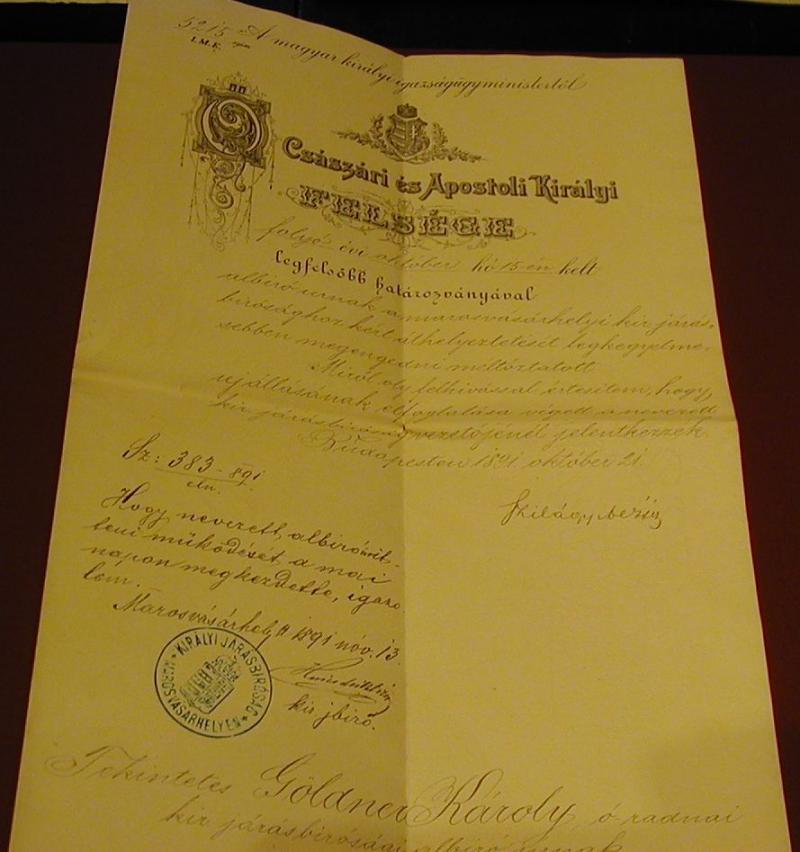 5215
I.M.E. szám
A magyar királyi igazságügyministertől
Ő Császári és Apostoli Királyi
FELSÉGE
folyó évi október hó 15-én kelt
legfelsőbb határozványával
albiró urnak a marosvásárhelyi kir. járás-
birósághoz kért áthelyeztetését legkegyelme-
sebben megengedni méltóztatott.
Miről oly felhivással értesitem, hogy
uj állásának elfoglalása végett a nevezett
kir. járásbiróság vezetőjénél jelentkezzék.
Budapesten 1891 október 21.
Szilágyi Dezső
Sz: 383-891
eln.
Hogy nevezett albiró úr it-
teni működését a mai
napon megkezdette, igazo-
lom.
Marosvásárhely 1891 nov. 13.
kir jbiró.
KIRÁLYI JÁRÁSBIRÓSÁG
MAROSVÁSÁRHELYEN
Tekintetes Göldner Károly, ó radnai
kir járásbirósági albiró urnak